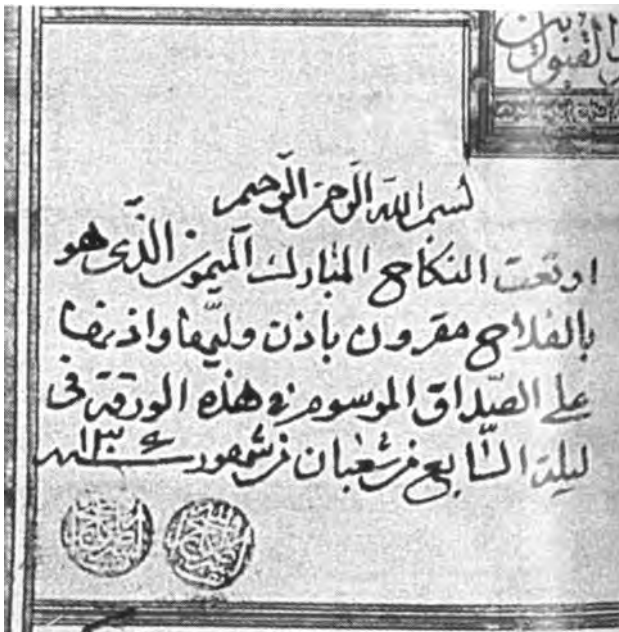 بسم الله الرحمن الرحیم
اوقعت النکاح المبارك المیمون الذی هو
بالفلاح مقرون باذن ولیّها واذنها
علی الصّداق الموسوم فی هذه الورقة فی
لیلة السّابع من شعبان من شهور سنه